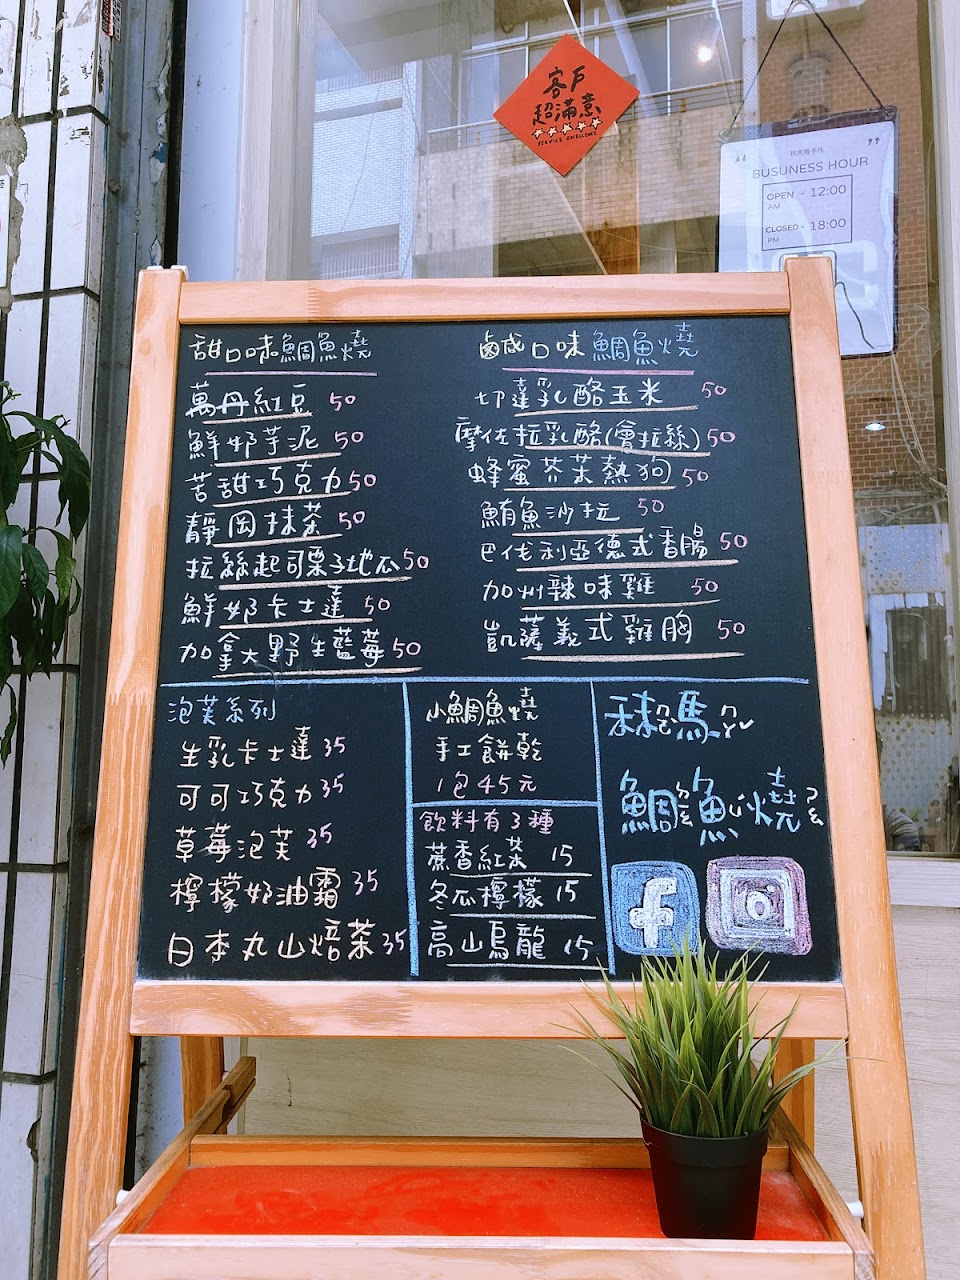 客戶
超滿意
SERVICE EXCELLENCE
BUSUNESS HOUR
OPEN - 12:00
AM
CLOSED - 18:00
PM
甜口味鯛魚燒
萬丹紅豆 50
鮮奶芋泥 50
苦甜巧克力 50
靜岡抹茶 50
拉絲起司栗子地瓜 50
鮮奶卡士達 50
加拿大野生藍莓 50
鹹口味鯛魚燒
切達乳酪玉米 50
摩佐拉乳酪(會拉絲) 50
蜂蜜芥茉熱狗 50
鮪魚沙拉 50
巴伐利亞德式香腸 50
加州辣味雞 50
凱薩義式雞胸 50
泡芙系列
生乳卡士達 35
可可巧克力 35
草莓泡芙 35
檸檬奶油霜 35
日本丸山焙茶 35
小鯛魚燒
手工餅乾
1包45元
飲料有3種
蔗香紅茶 15
冬瓜檸檬 15
高山烏龍 15
鯛魚燒